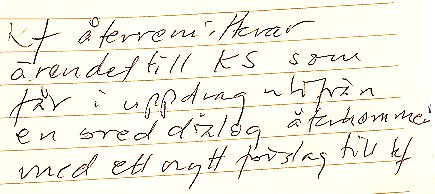 Kf återremitterar
ärendet till KS som
får i uppdrag utifrån
en bred dialog återkomma
med ett nytt förslag till kf